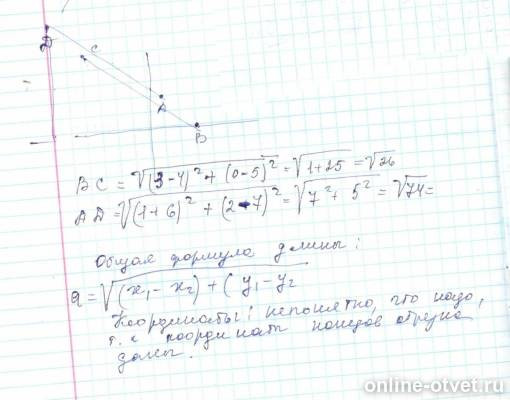 D
C
A
B
BC = √(3-4)² + (0-5)² = √1+25 = √26
AD = √(1+6)² + (2-7)² = √7² + 5² = √74 =
Общая формула длины:
q = √(x₁ - x₂) + (y₁ - y₂
Координаты: непонятно, что надо,
т.к координат концов отрезка
даны.
online-otvet.ru